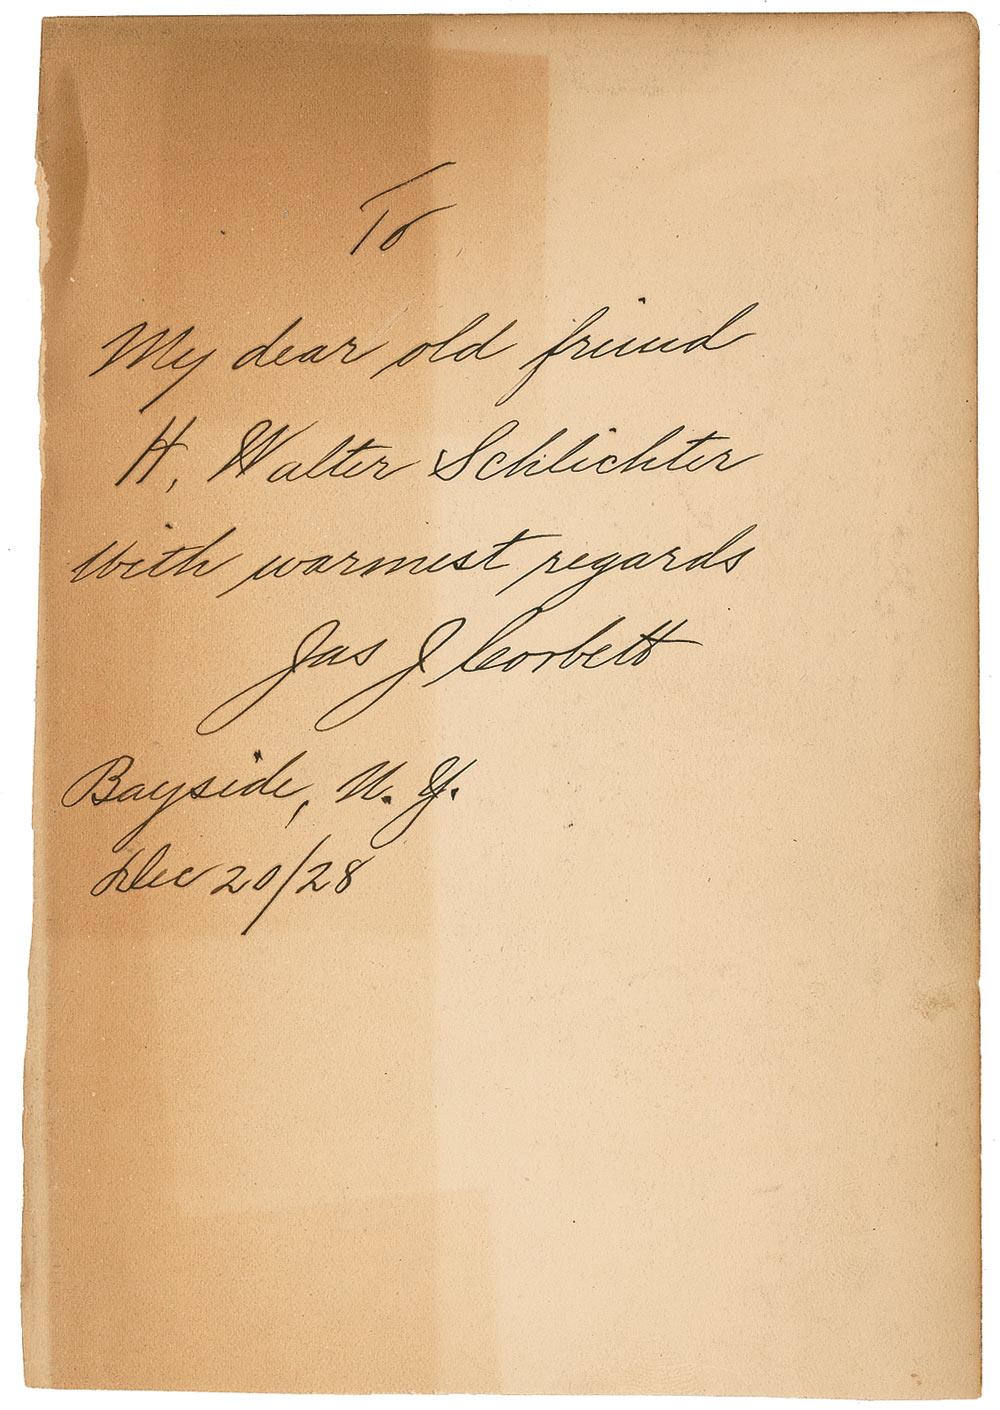 To
My dear old friend
H. Walter Schlichter
With warmest regards
Jas J Corbett
Bayside, N. Y.
Dec 20/28